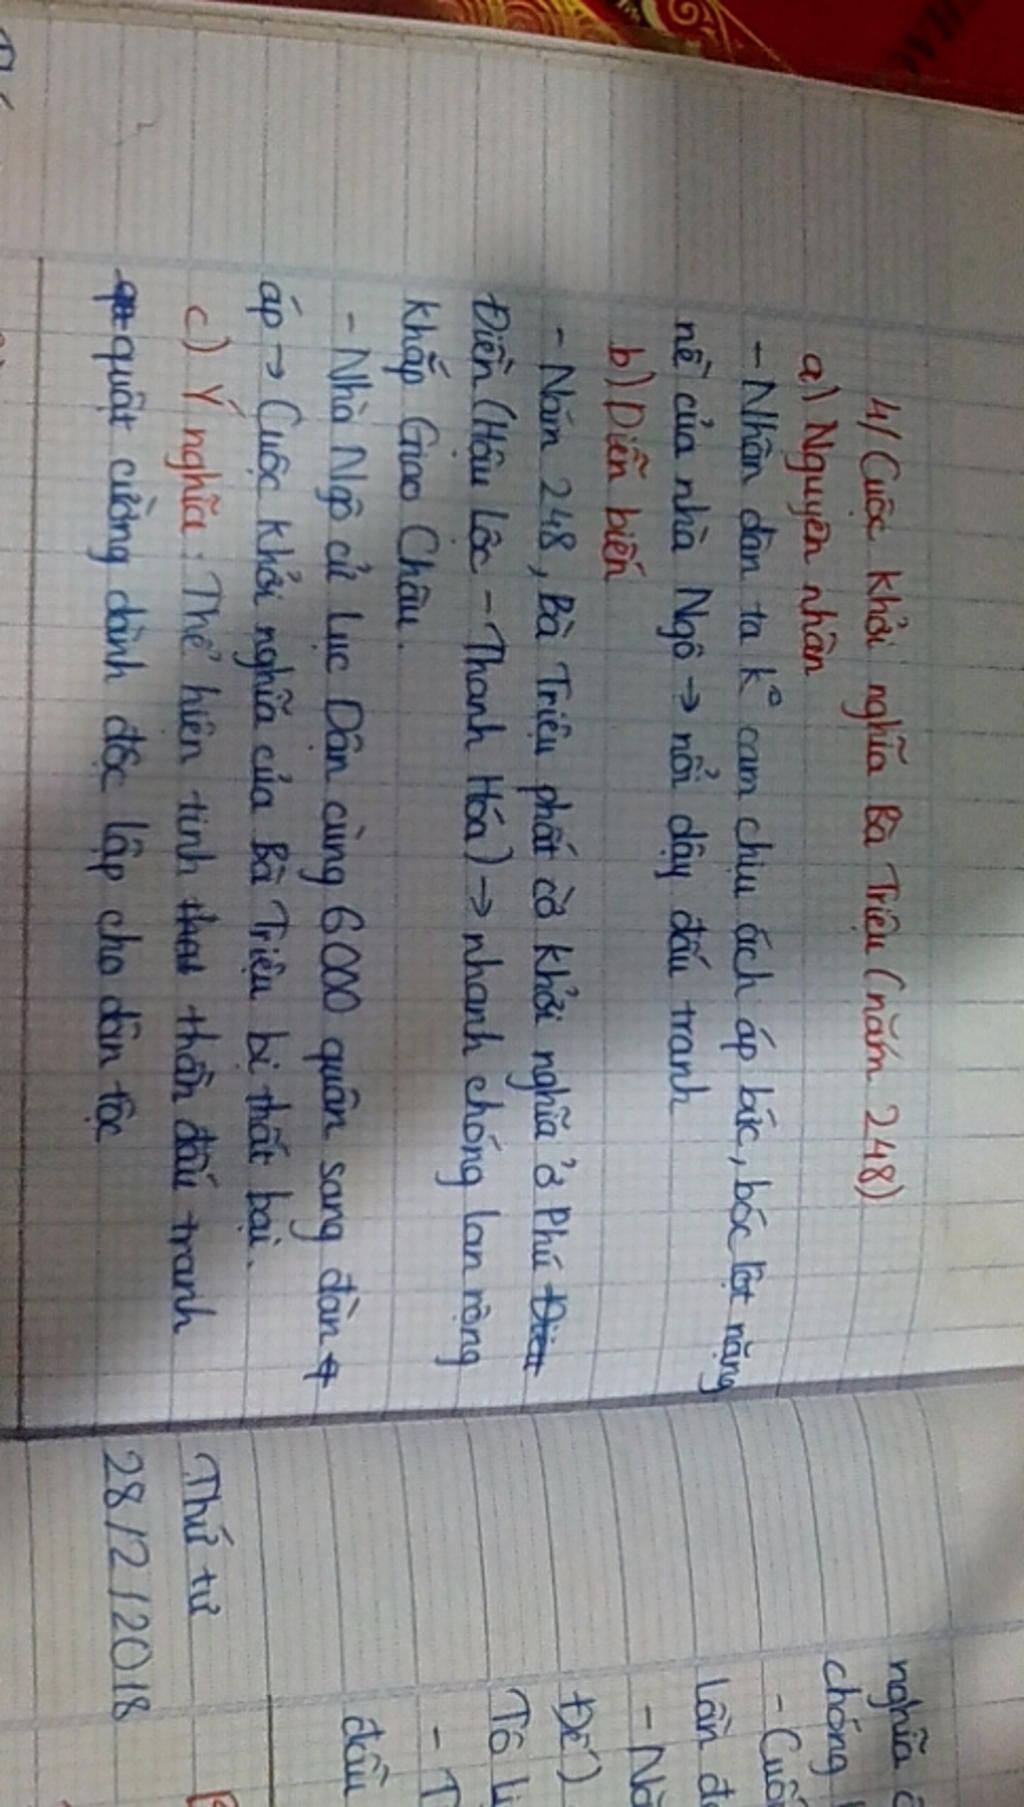 4/ Cuộc khởi nghĩa Bà Triệu (năm 248)
a) Nguyên nhân
- Nhân dân ta k° cam chịu ách áp bức, bóc lột nặng
nề của nhà Ngô → nổi dậy đấu tranh
b) Diễn biến
- Năm 248, Bà Triệu phất cờ khởi nghĩa ở Phú Điền
Điền (Hậu Lộc - Thanh Hóa) → nhanh chóng lan rộng
khắp Giao Châu.
- Nhà Ngô cử Lục Dận cùng 6000 quân sang đàn
áp → Cuộc khởi nghĩa của Bà Triệu bị thất bại.
c) Ý nghĩa: Thể hiện tinh thần đấu tranh
quật cường dành độc lập cho dân tộc
nghĩa
chống
- Cuối
lần
Đế)
Tô
đầu
Thứ tư
28/2/2018